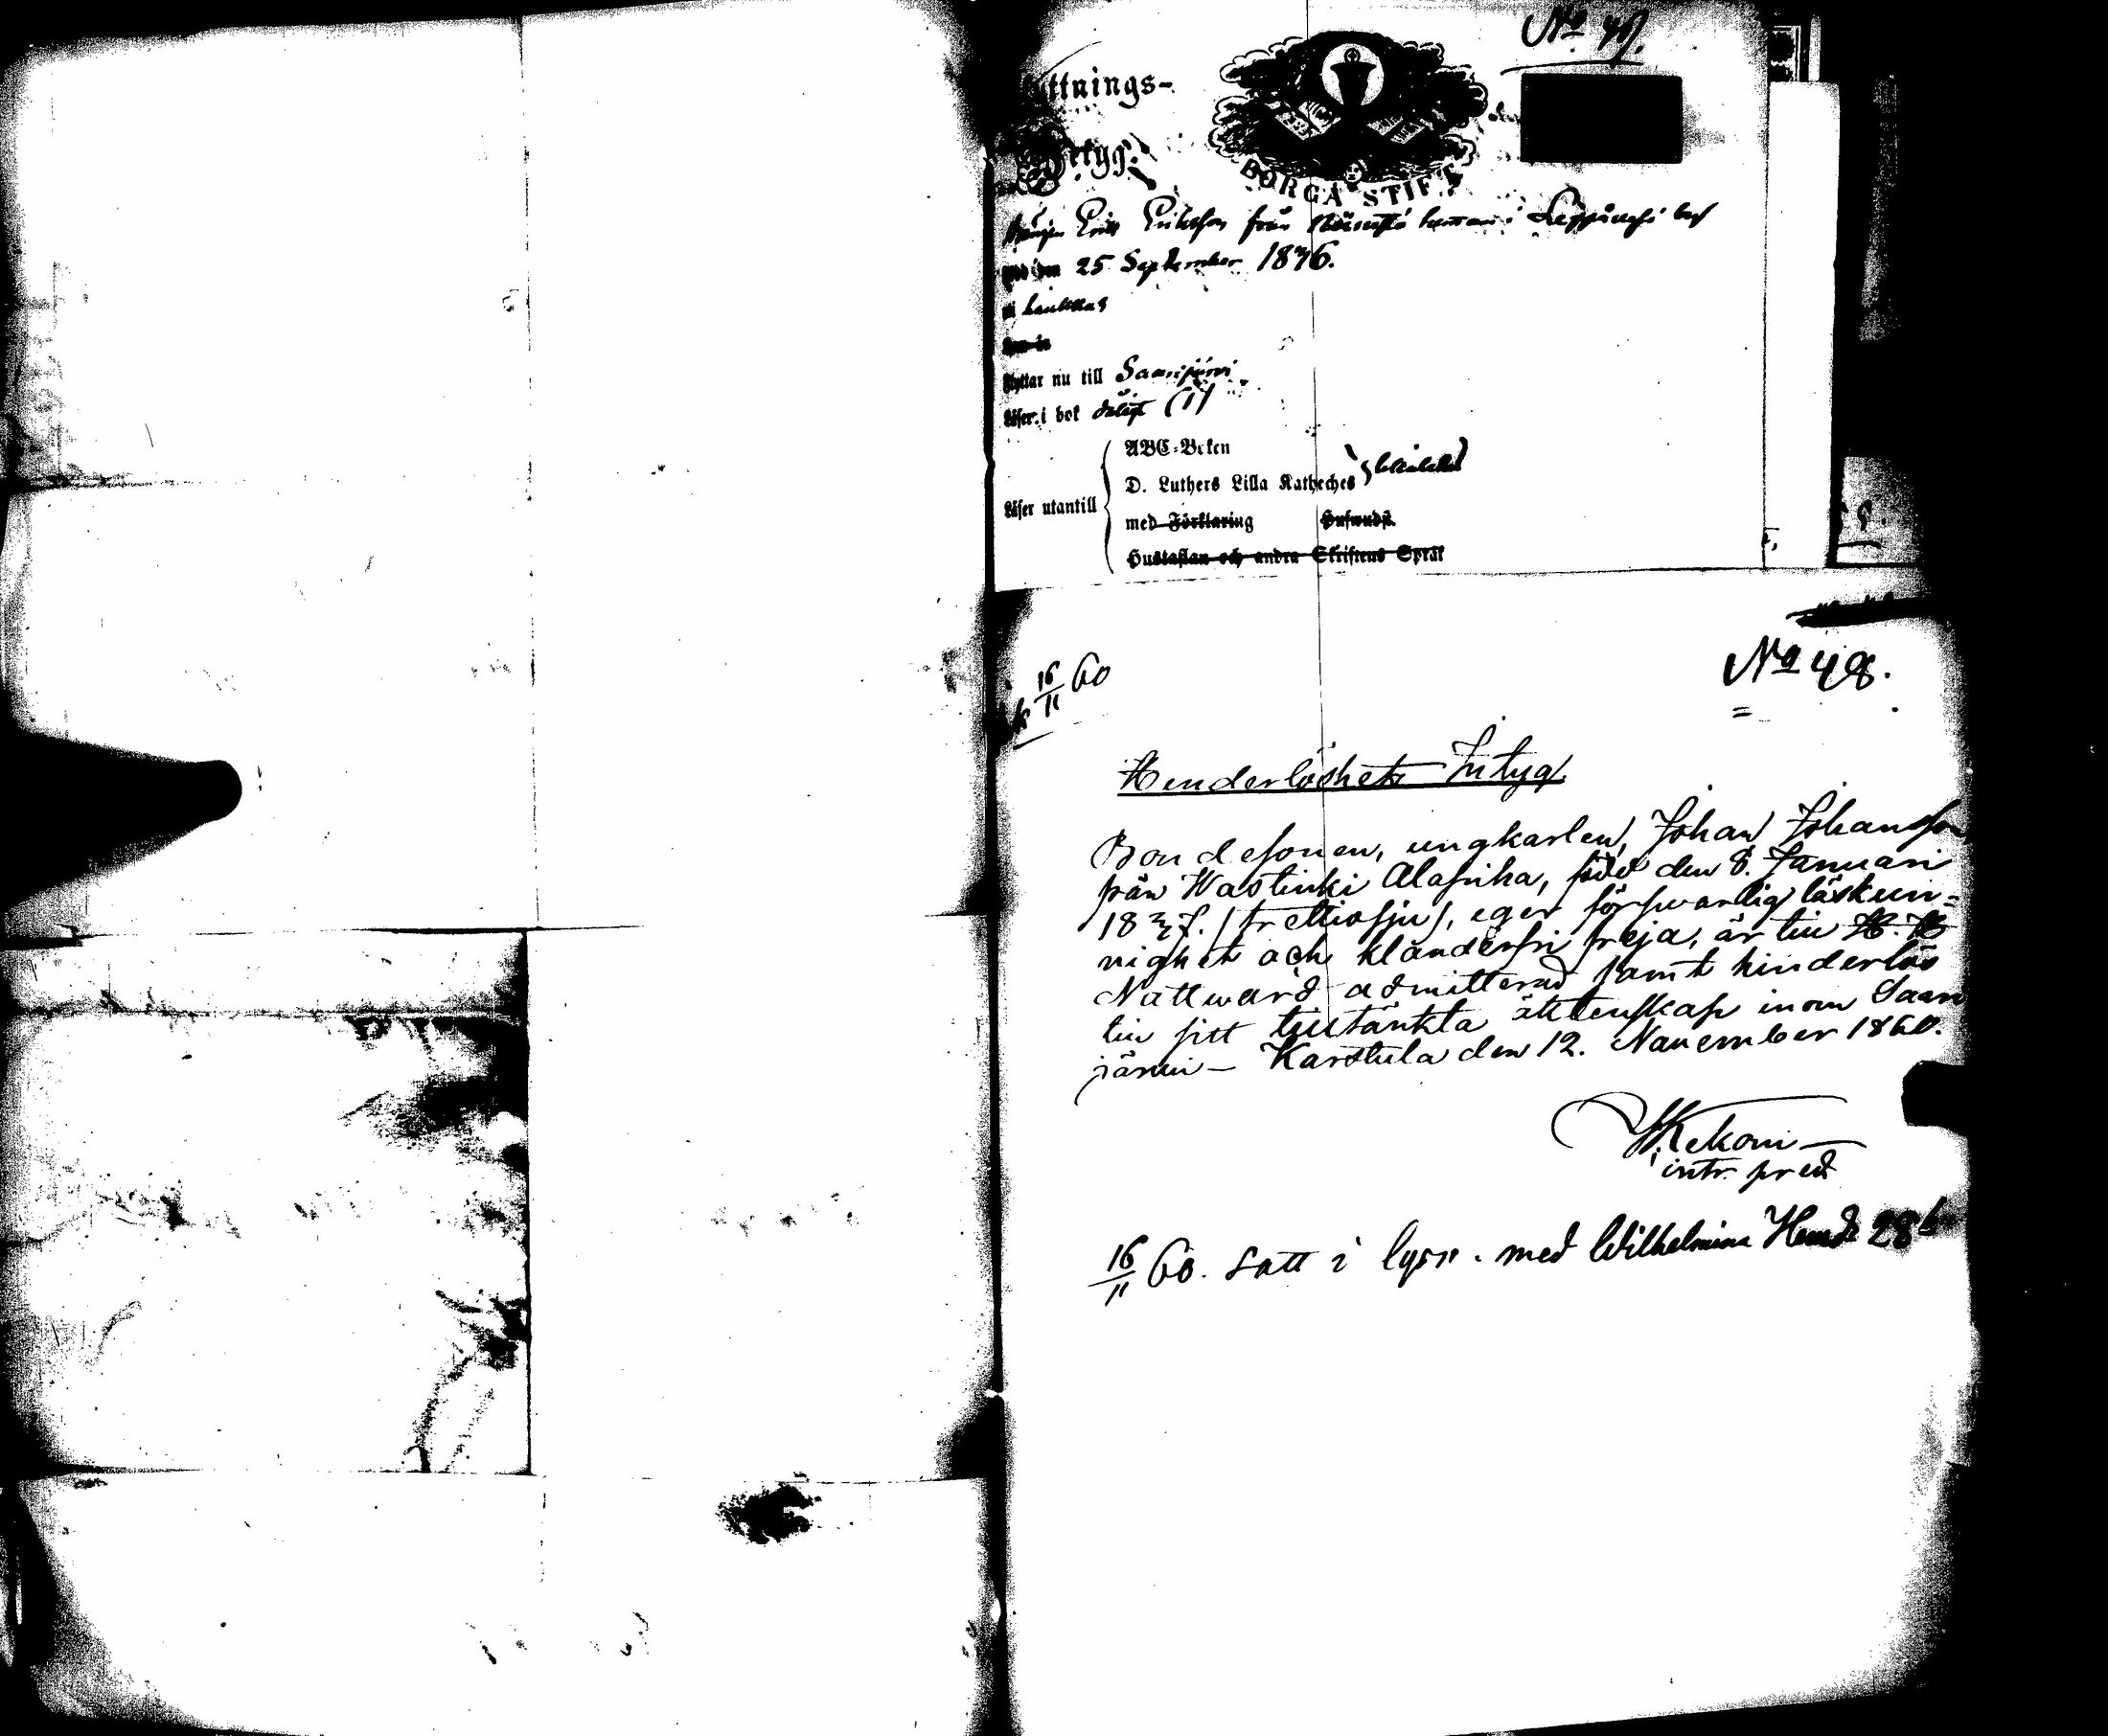 No 47.
BORGÅ STIFT
Erik Eriksson från
den 25 September 1836.
Flyttar nu till Saarijärvi
Läser i bok
ABC-Boken
D. Luthers Lilla Kateches
Läser utantill
med Förklaring Hufwudst.
Hustaflan och andra Skriftens Språk
16/11 60
No 48.
Henderlöshets Intyg.
Bondesonen, ungkarlen, Johan Johansson
från Wastinki Alapiha, född den 8. Januari
1837. (trettiosju), eger försvarlig läskun-
nighet och klanderfri freja, är till H. H.
Nattward admitterad samt hinderlös
till sitt tilltänkta äktenskap inom Saari
järvi — Karstula den 12. November 1860.
Kekoni
intr. pred
16/11 60. satt i lysn. med Wilhelmina Hendr 28